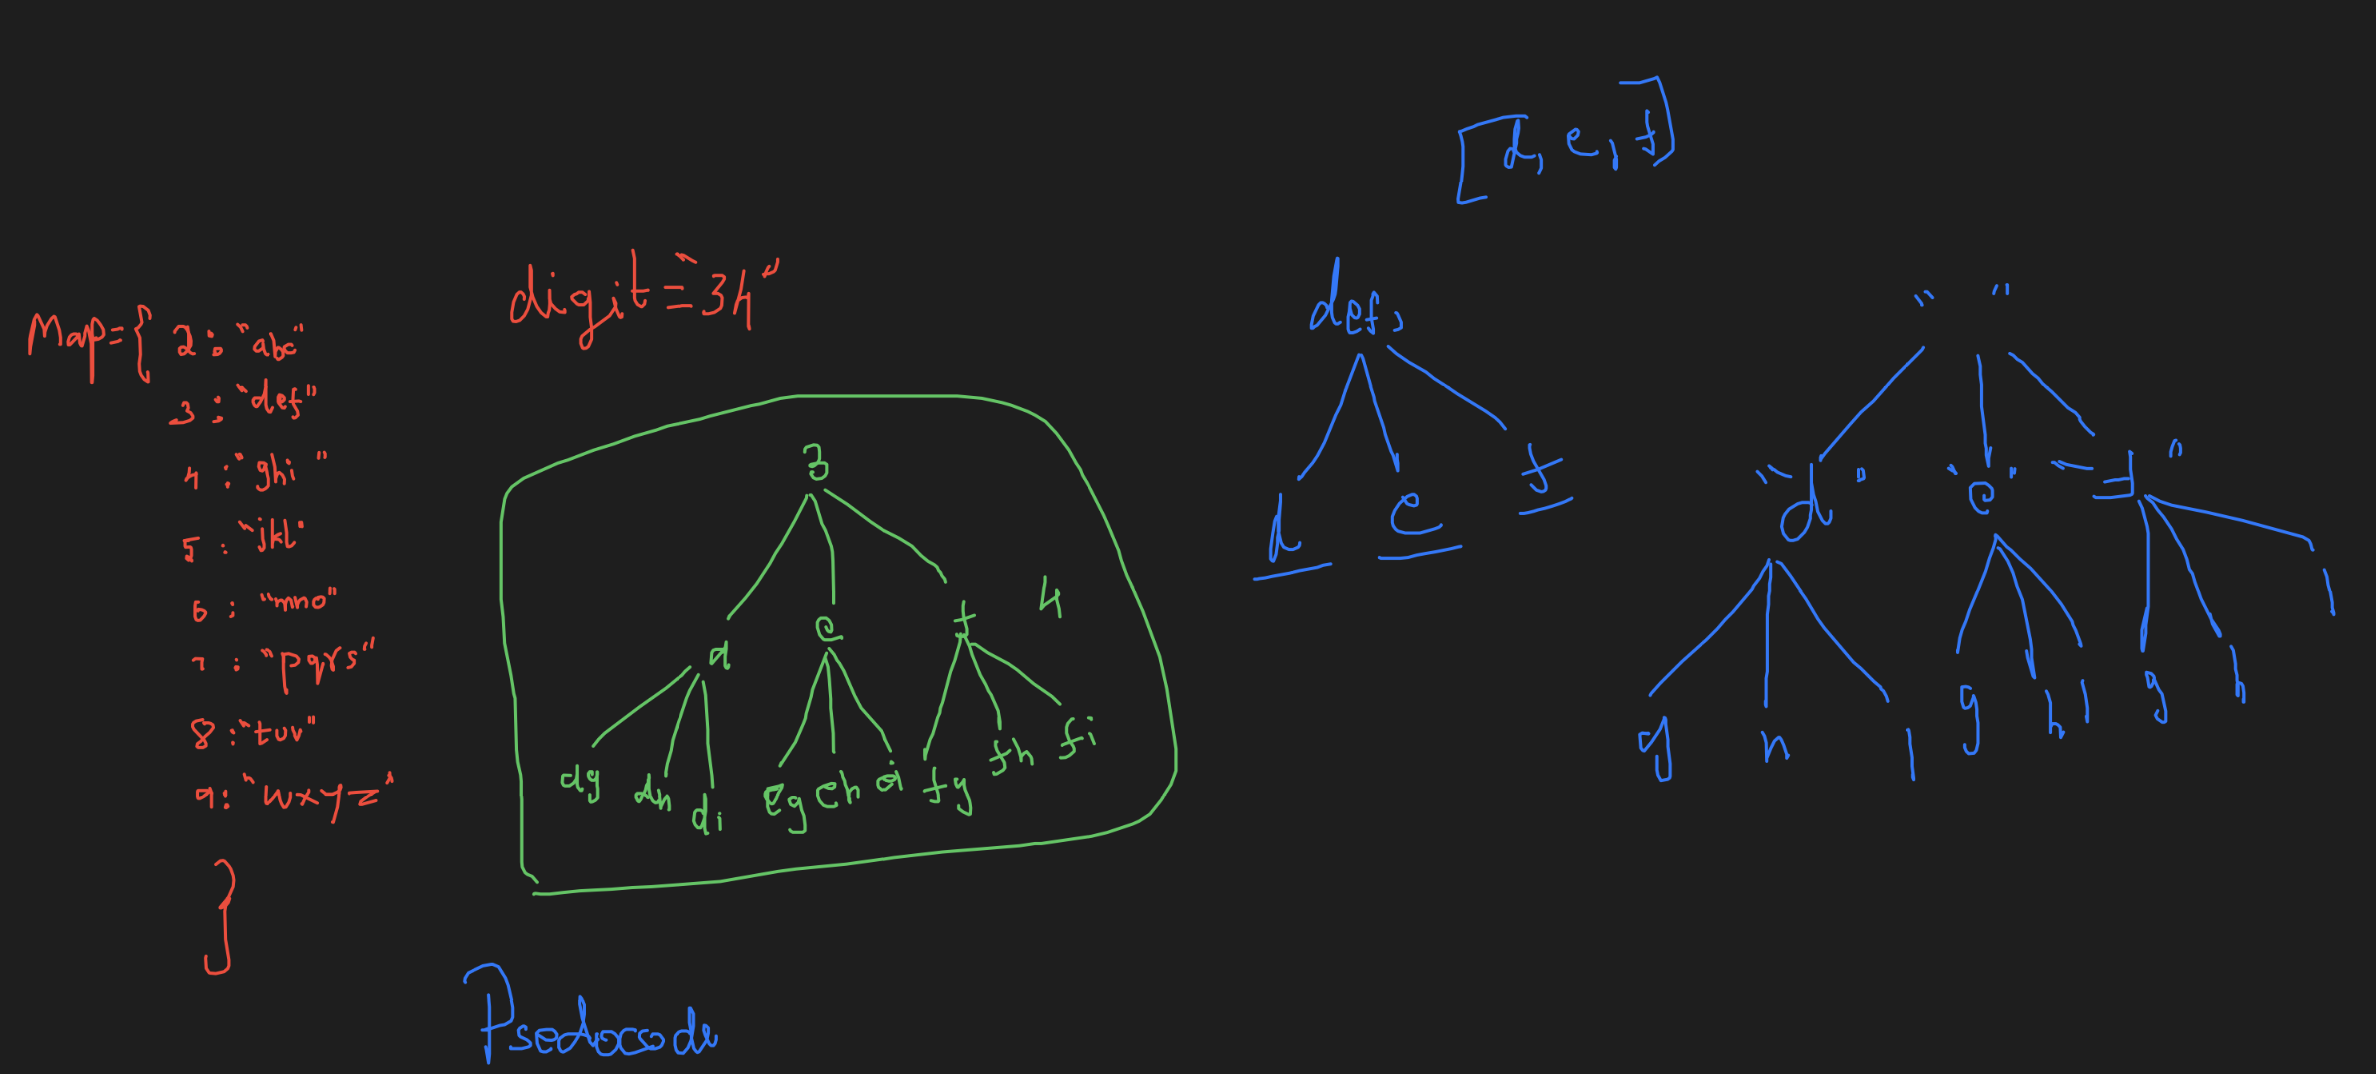 [d, e, f]
digit = "34"
Map = { 2 : "abc"
3 : "def"
4 : "ghi"
5 : "jkl"
6 : "mno"
7 : "pqrs"
8 : "tuv"
9 : "wxyz"
}
3
d e f 4
dg dh di eg eh ei fg fh fi
def,
d e f
" "
"d" "e" "f"
g h i g h i g h i
Psedocode